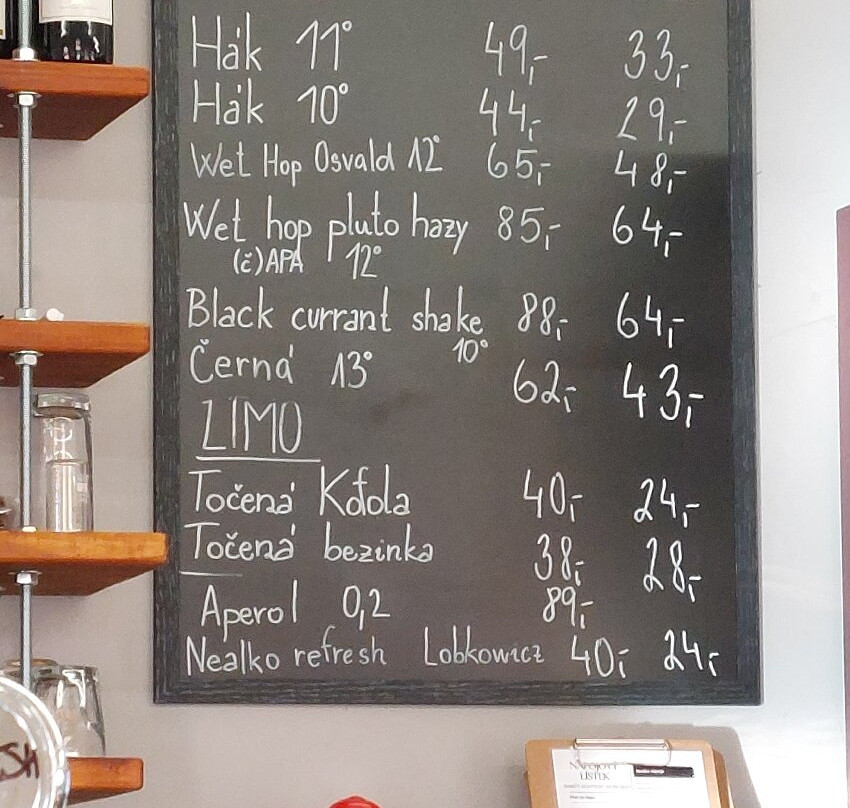 Hák 11° 49,- 33,-
Hák 10° 44,- 29,-
Wet Hop Osvald 12° 65,- 48,-
Wet hop pluto hazy 85,- 64,-
(č)APA 12°
Black currant shake 88,- 64,-
10°
Černá 13° 62,- 43,-
ZIMO
Točená Kofola 40,- 24,-
Točená bezinka 38,- 28,-
Aperol 0,2 89,-
Nealko refresh Lobkowicz 40,- 24,-
NÁPOJOVÝ
LÍSTEK